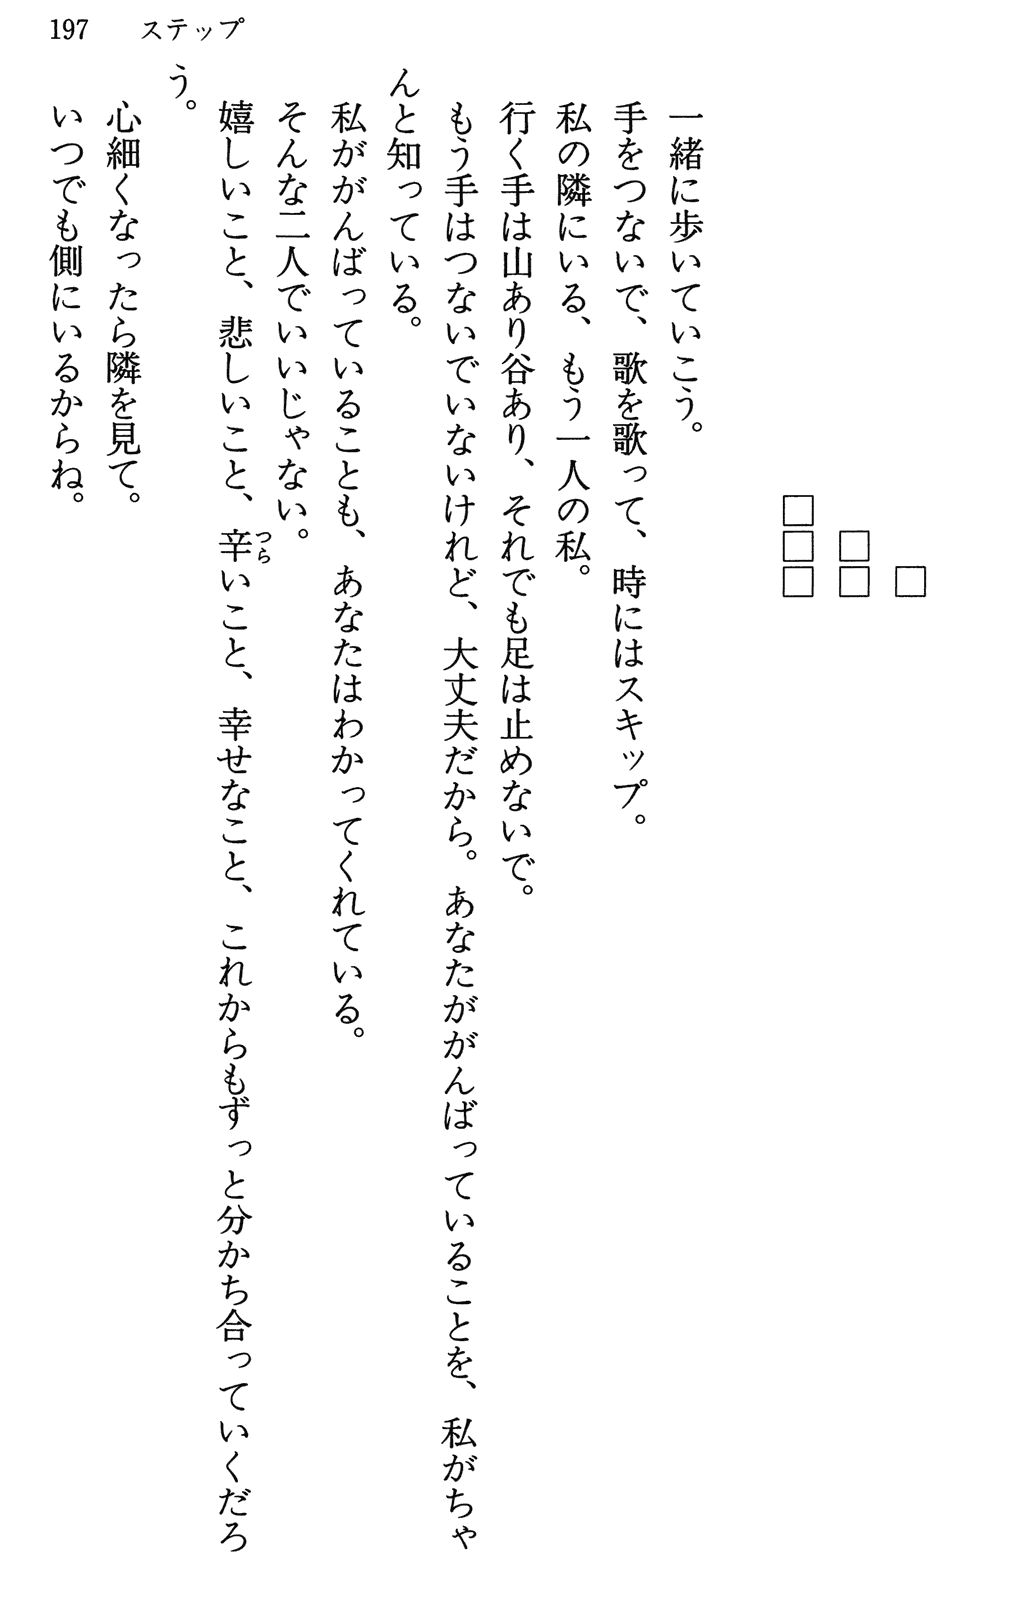 197 ステップ
□
□□
□□□
一緒に歩いていこう。
手をつないで、歌を歌って、時にはスキップ。
私の隣にいる、もう一人の私。
行く手は山あり谷あり、それでも足は止めないで。
もう手はつないでいないけれど、大丈夫だから。あなたががんばっていることを、私がちゃ
んと知っている。
私ががんばっていることも、あなたはわかってくれている。
そんな二人でいいじゃない。
嬉しいこと、悲しいこと、辛いこと、幸せなこと、これからもずっと分かち合っていくだろ
つら
う。
心細くなったら隣を見て。
いつでも側にいるからね。